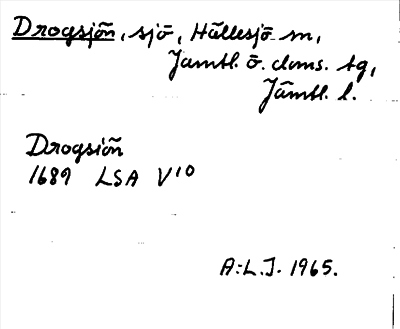 Drogsjön, sjö, Hällesjö sn,
Jämtl. ö. doms. tg,
Jämtl. l.
Drogsiön
1689 LSA V10
A:L.J. 1965.